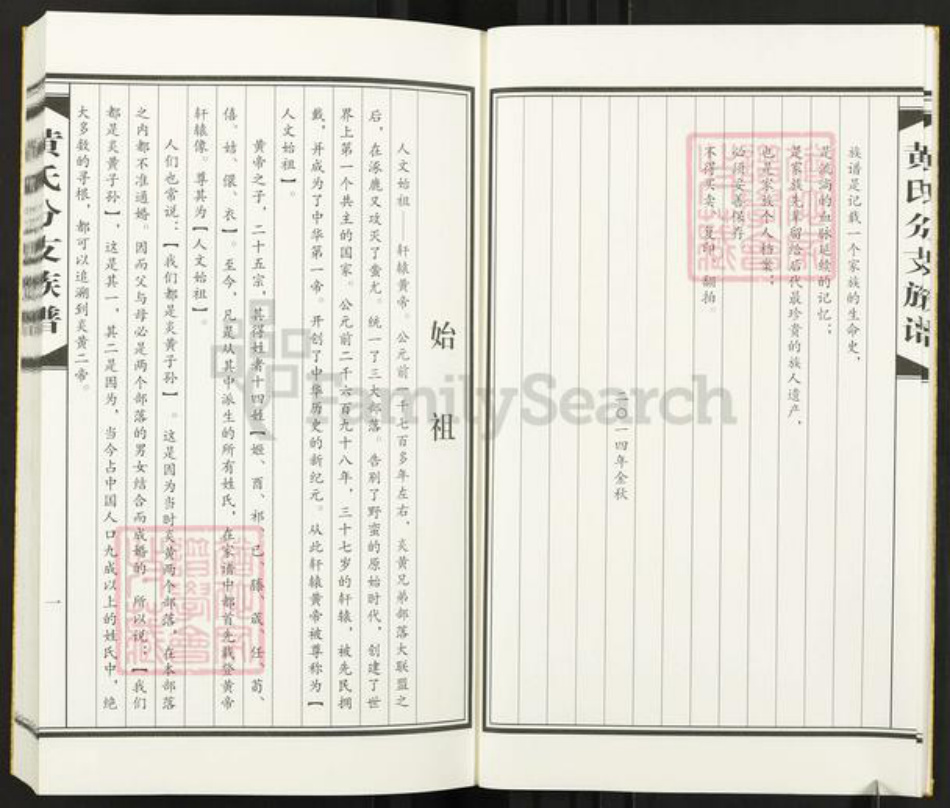 黄氏分支族谱
族谱是记载一个家族的生命史，
是流淌的血脉延续的记忆；
是家族先辈留给后代最珍贵的族人遗产，
也是家族个人档案；
必须妥善保存，
不得买卖、复印、翻拍。
二〇一四年金秋
始祖
人文始祖——轩辕黄帝。公元前二千七百多年左右，炎黄兄弟部落大联盟之
后，在涿鹿又攻灭了蚩尤。统一了三大部落。告别了野蛮的原始时代，创建了世
界上第一个共主的国家。公元前二千六百九十八年，三十七岁的轩辕，被先民拥
戴，并成为了中华第一帝。开创了中华历史的新纪元。从此轩辕黄帝被尊称为【
人文始祖】。
黄帝之子，二十五宗，其得姓者十四姓【姬、酉、祁、己、滕、葴、任、荀、
僖、姞、儇、衣】。至今，凡是从其中派生的所有姓氏，在家谱中都首先载登黄帝
轩辕像。尊其为【人文始祖】。
人们也常说：【我们都是炎黄子孙】。这是因为当时炎黄两个部落，在本部落
之内都不准通婚。因而父与母必是两个部落的男女结合而成婚的，所以说：【我们
都是炎黄子孙】，这是其一，其二是因为，当今占中国人口九成以上的姓氏中，绝
大多数的寻根，都可以追溯到炎黄二帝。
黄氏分支族谱
一
FamilySearch